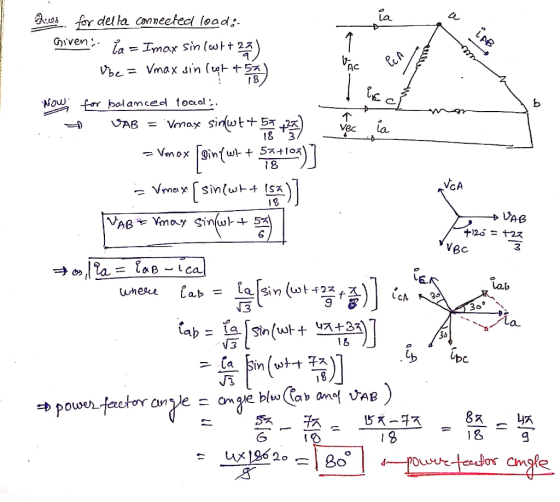 Ques. for delta connected load:-
Given:- ia = Imax sin(ωt + 2π/9)
Vbc = Vmax sin(ωt + 5π/18)
Now, for balanced load:-
⇒ VAB = Vmax sin(ωt + 5π/18 + 2π/3)
= Vmax [sin(ωt + 5π+10π/18)]
= Vmax [sin(ωt + 15π/18)]
VAB = Vmax sin(ωt + 5π/6)
⇒ as, ia = iaB − ica
where iab = ia/√3 [sin(ωt + 2π/9 + π/6)]
iab = ia/√3 [sin(ωt + 4π+3π/18)]
= ia/√3 [sin(ωt + 7π/18)]
⇒ power factor angle = angle b/w (iab and VAB)
= 5π/6 − 7π/18 = 15π−7π/18 = 8π/18 = 4π/9
= 4×180 20/9 = 80° ← power factor angle
ia
a
iAB
VAC
iCA
c
b
VBC
ia
VCA
VAB
+120° = +2π/3
VBC
iCA
30°
iab
30°
ia
30
ib
ibc